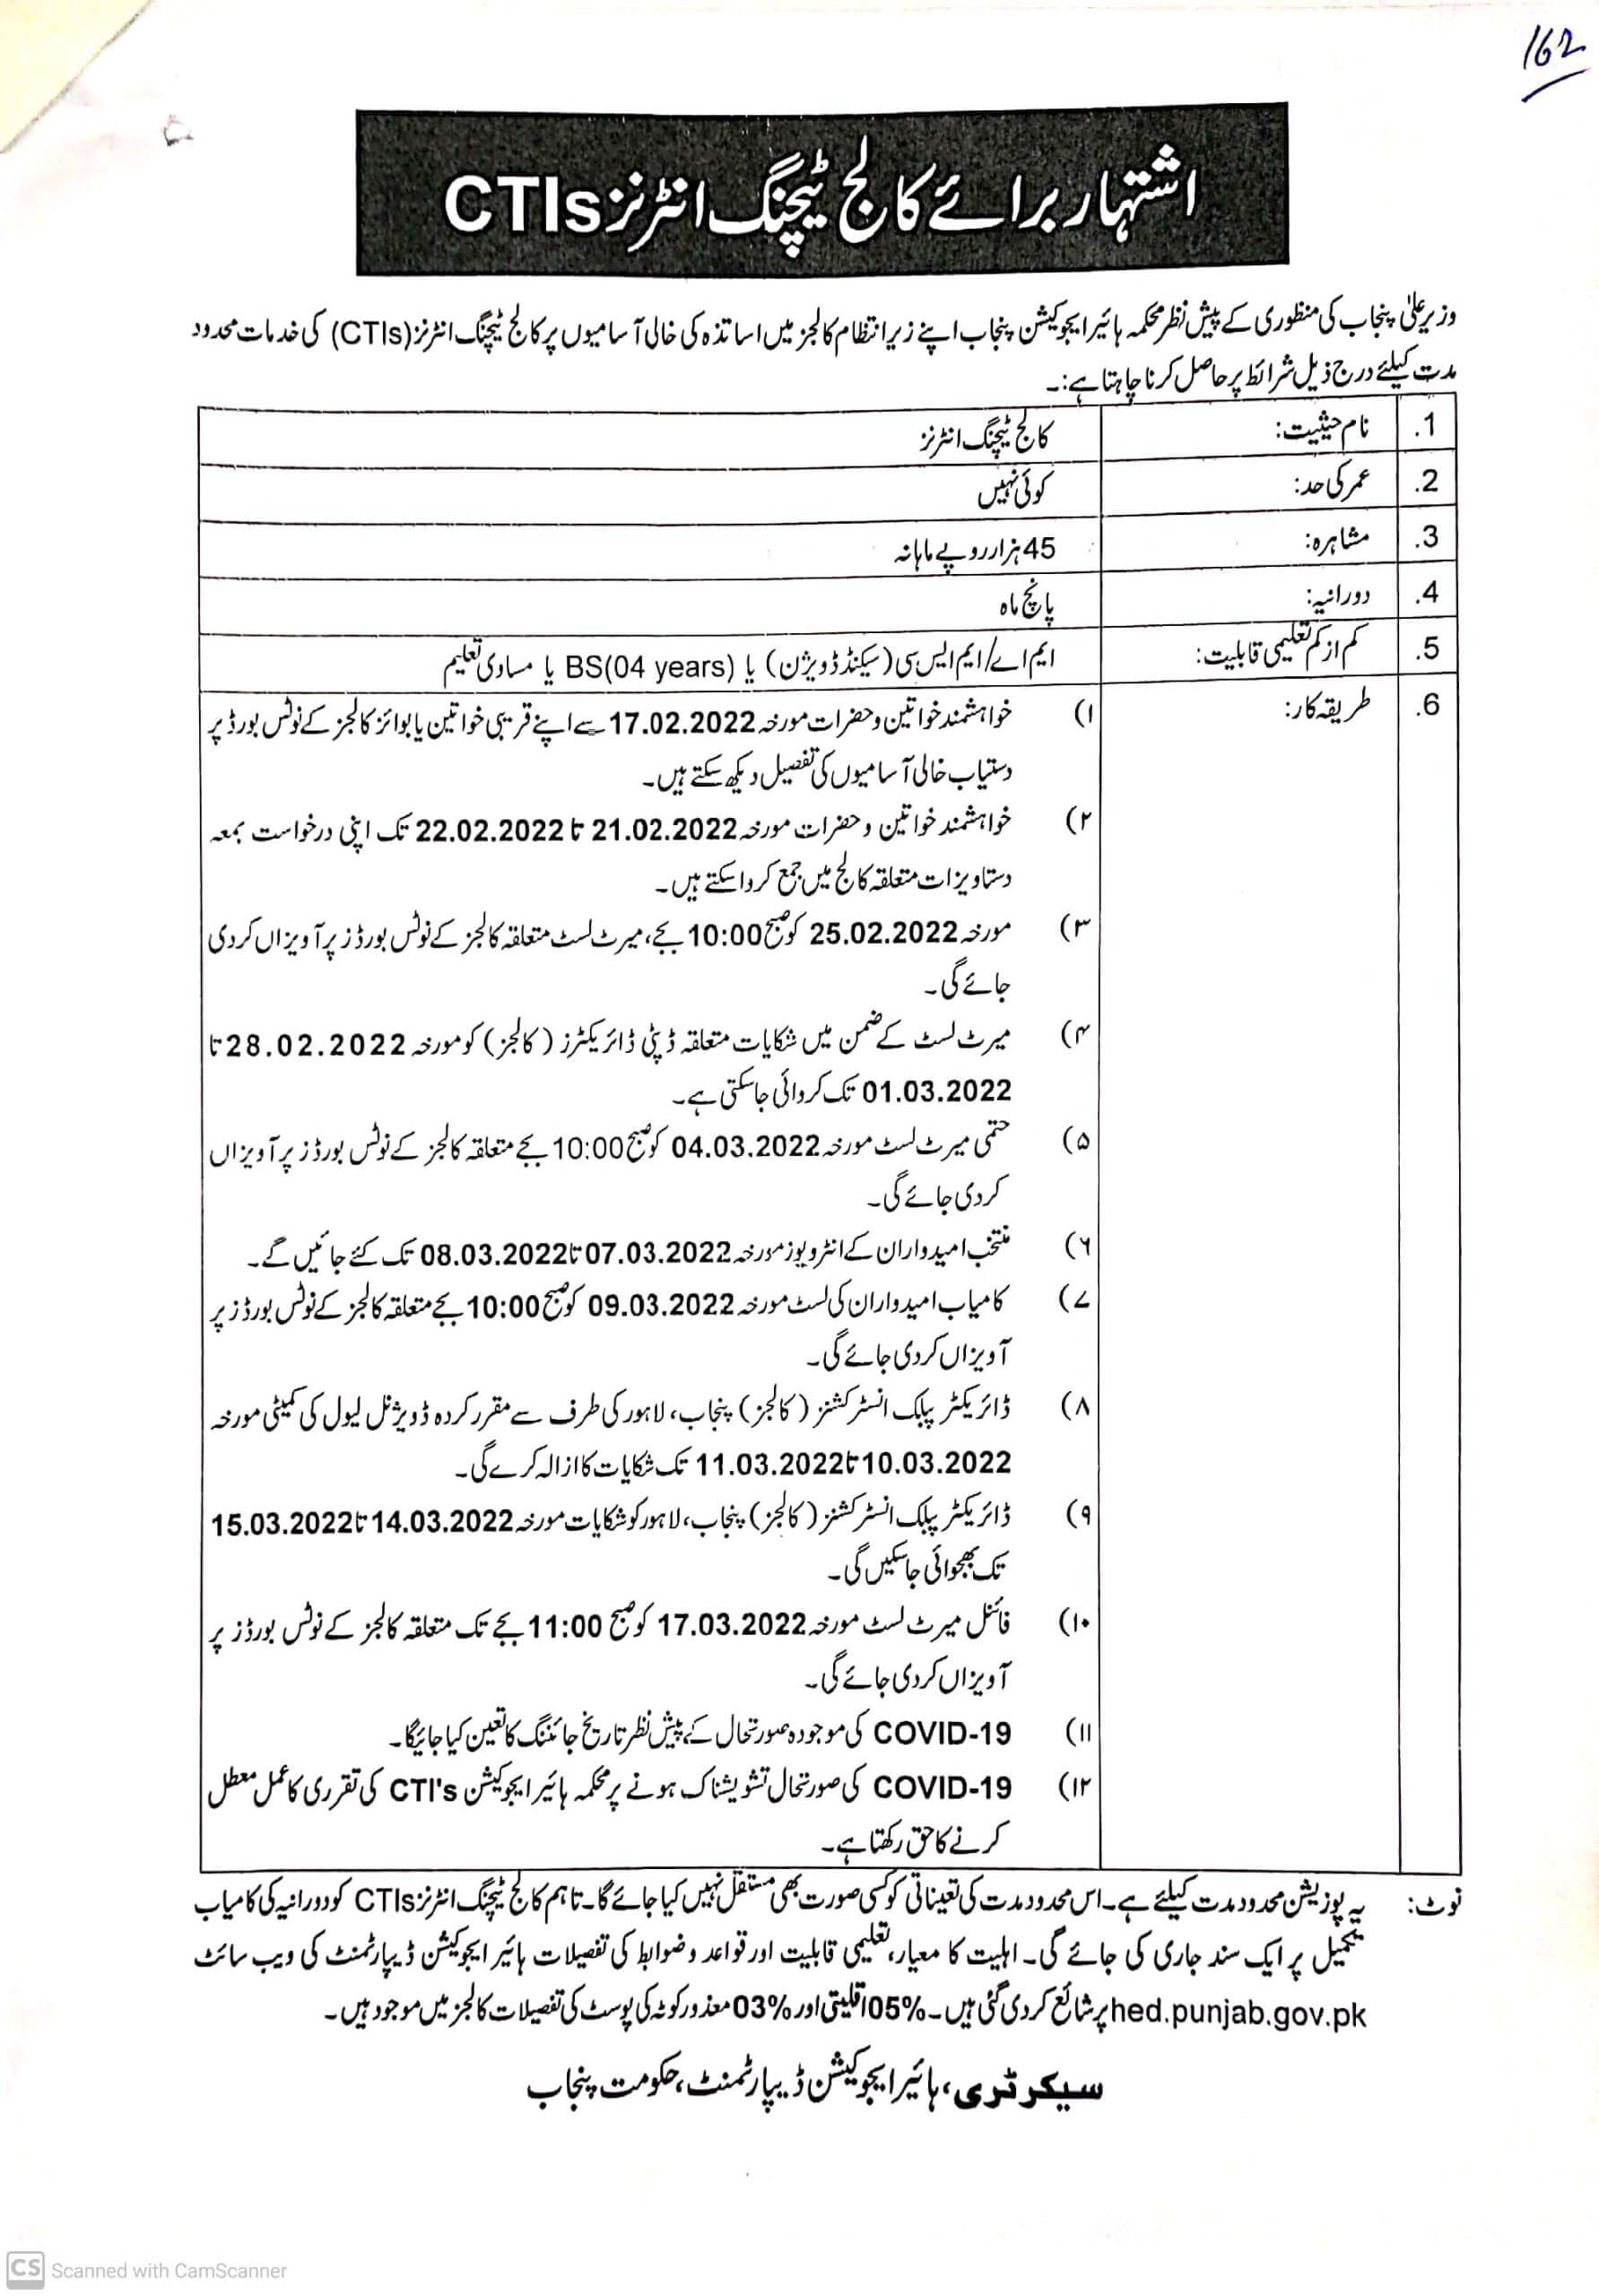 162
اشتہار برائے کالج ٹیچنگ انٹرنز CTIs
وزیر اعلیٰ پنجاب کی منظوری کے پیش نظر محکمہ ہائیر ایجوکیشن پنجاب اپنے زیر انتظام کالجز میں اساتذہ کی خالی آسامیوں پر کالج ٹیچنگ انٹرنز (CTIs) کی خدمات محدود
مدت کیلئے درج ذیل شرائط پر حاصل کرنا چاہتا ہے:۔
1. نام حیثیت: کالج ٹیچنگ انٹرنز
2. عمر کی حد: کوئی نہیں
3. مشاہرہ: 45 ہزار روپے ماہانہ
4. دورانیہ: پانچ ماہ
5. کم از کم تعلیمی قابلیت: ایم اے/ ایم ایس سی (سیکنڈ ڈویژن) یا BS(04 years) یا مساوی تعلیم
6. طریقہ کار: ۱) خواہشمند خواتین و حضرات مورخہ 17.02.2022 سے اپنے قریبی خواتین یا بوائز کالجز کے نوٹس بورڈ پر
دستیاب خالی آسامیوں کی تفصیل دیکھ سکتے ہیں۔
۲) خواہشمند خواتین و حضرات مورخہ 21.02.2022 تا 22.02.2022 تک اپنی درخواست بمعہ
دستاویزات متعلقہ کالج میں جمع کروا سکتے ہیں۔
۳) مورخہ 25.02.2022 کو صبح 10:00 بجے، میرٹ لسٹ متعلقہ کالجز کے نوٹس بورڈز پر آویزاں کر دی
جائے گی۔
۴) میرٹ لسٹ کے ضمن میں شکایات متعلقہ ڈپٹی ڈائریکٹرز (کالجز) کو مورخہ 28.02.2022 تا
01.03.2022 تک کروائی جا سکتی ہے۔
۵) حتمی میرٹ لسٹ مورخہ 04.03.2022 کو صبح 10:00 بجے متعلقہ کالجز کے نوٹس بورڈز پر آویزاں
کر دی جائے گی۔
۶) منتخب امیدواران کے انٹرویوز مورخہ 07.03.2022 تا 08.03.2022 تک کئے جائیں گے۔
۷) کامیاب امیدواران کی لسٹ مورخہ 09.03.2022 کو صبح 10:00 بجے متعلقہ کالجز کے نوٹس بورڈز پر
آویزاں کر دی جائے گی۔
۸) ڈائریکٹر پبلک انسٹرکشنز (کالجز) پنجاب، لاہور کی طرف سے مقرر کردہ ڈویژنل لیول کی کمیٹی مورخہ
10.03.2022 تا 11.03.2022 تک شکایات کا ازالہ کرے گی۔
۹) ڈائریکٹر پبلک انسٹرکشنز (کالجز) پنجاب، لاہور کو شکایات مورخہ 14.03.2022 تا 15.03.2022
تک بھجوائی جا سکیں گی۔
۱۰) فائنل میرٹ لسٹ مورخہ 17.03.2022 کو صبح 11:00 بجے تک متعلقہ کالجز کے نوٹس بورڈز پر
آویزاں کر دی جائے گی۔
۱۱) COVID-19 کی موجودہ صورتحال کے پیش نظر تاریخ جائننگ کا تعین کیا جائیگا۔
۱۲) COVID-19 کی صورتحال تشویشناک ہونے پر محکمہ ہائیر ایجوکیشن CTI's کی تقرری کا عمل معطل
کرنے کا حق رکھتا ہے۔
نوٹ: یہ پوزیشن محدود مدت کیلئے ہے۔ اس محدود مدت کی تعیناتی کو کسی صورت بھی مستقل نہیں کیا جائے گا۔ تاہم کالج ٹیچنگ انٹرنز CTIs کو دورانیہ کی کامیاب
تکمیل پر ایک سند جاری کی جائے گی۔ اہلیت کا معیار، تعلیمی قابلیت اور قواعد و ضوابط کی تفصیلات ہائیر ایجوکیشن ڈیپارٹمنٹ کی ویب سائٹ
hed.punjab.gov.pk پر شائع کر دی گئی ہیں۔ 05% اقلیتی اور 03% معذور کوٹہ کی پوسٹ کی تفصیلات کالجز میں موجود ہیں۔
سیکرٹری، ہائیر ایجوکیشن ڈیپارٹمنٹ، حکومت پنجاب
CS Scanned with CamScanner